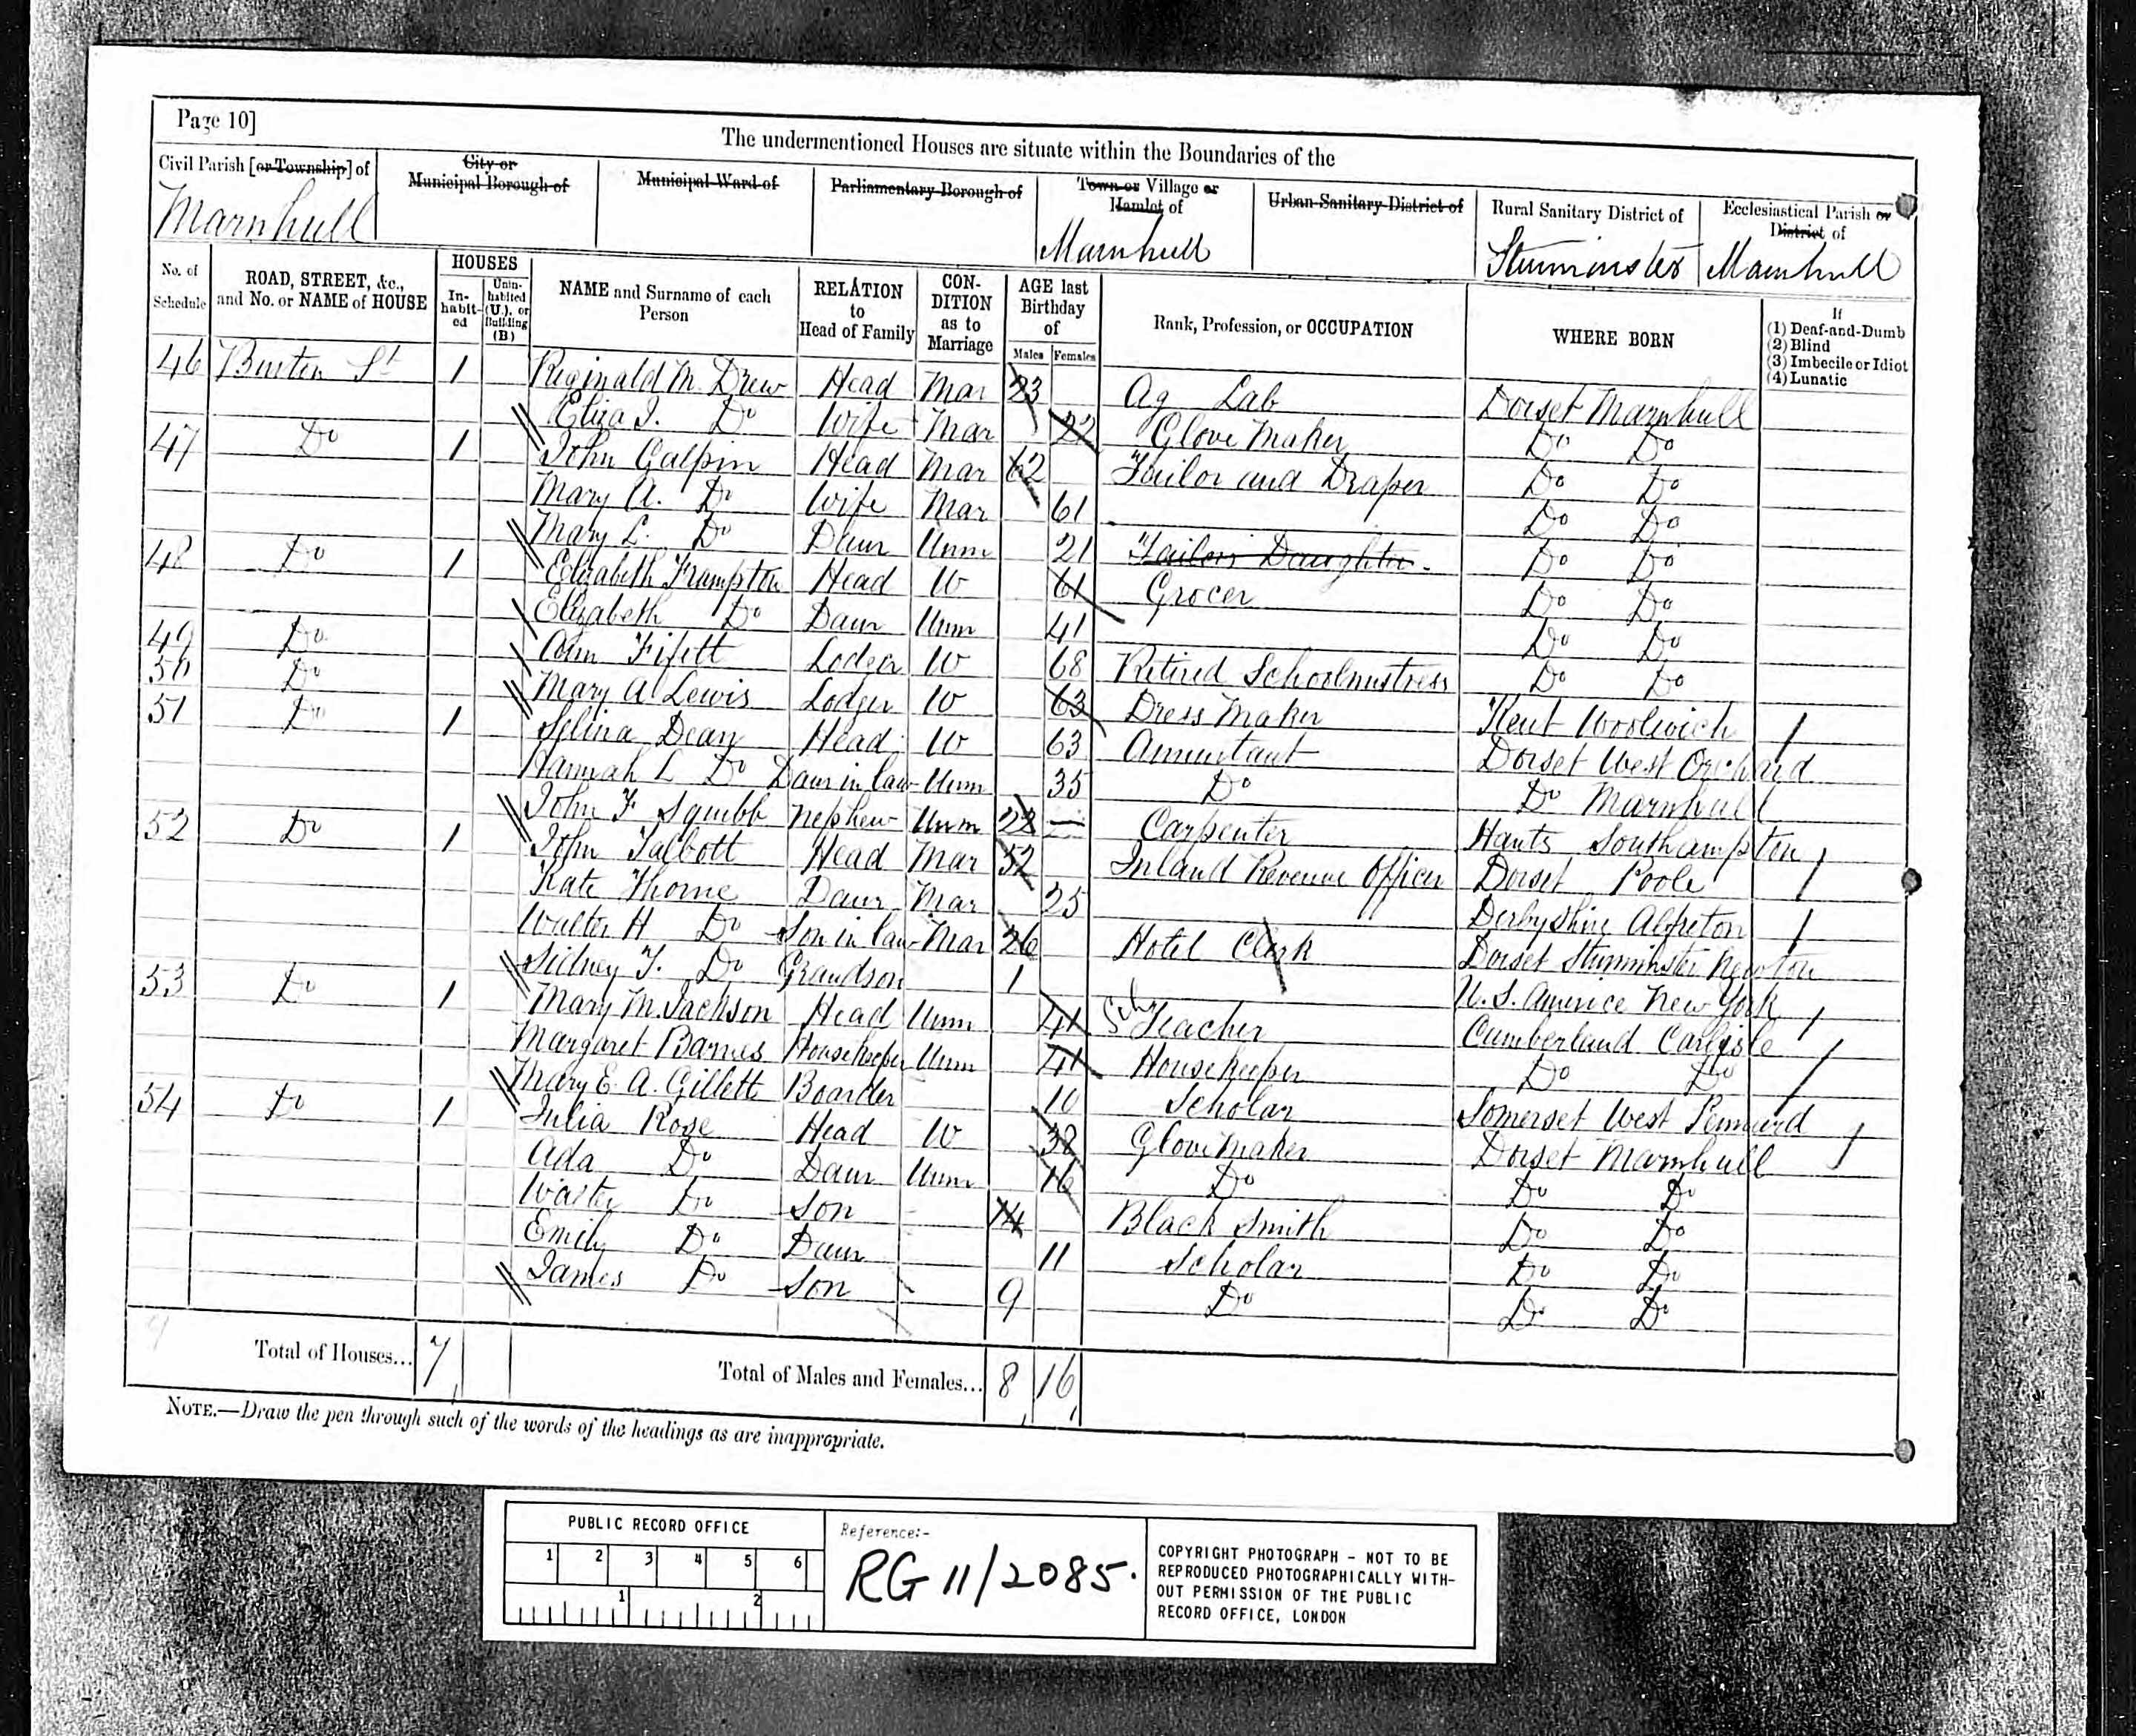 Page 10]
The undermentioned Houses are situate within the Boundaries of the
Civil Parish [or Township] of
Marnhull
City or
Municipal Borough of
Municipal Ward of
Parliamentary Borough of
Town or Village or
Hamlet of
Marnhull
Urban Sanitary District of
Rural Sanitary District of
Sturminster
Ecclesiastical Parish or
District of
Marnhull
No. of
Schedule
ROAD, STREET, &c.,
and No. or NAME of HOUSE
HOUSES
In-
habit-
ed
Unin-
habited
(U.), or
Building
(B)
NAME and Surname of each
Person
RELATION
to
Head of Family
CON-
DITION
as to
Marriage
AGE last
Birthday
of
Males Females
Rank, Profession, or OCCUPATION
WHERE BORN
If
(1) Deaf-and-Dumb
(2) Blind
(3) Imbecile or Idiot
(4) Lunatic
46 Burton St 1 Reginald M. Drew Head Mar 23 Ag Lab Dorset Marnhull
Eliza J. Do Wife Mar 22 Glove Maker Do Do
47 Do 1 John Galpin Head Mar 62 Tailor and Draper Do Do
Mary A. Do Wife Mar 61 Do Do
Mary L. Do Daur Unm 21 Tailors Daughter Do Do
48 Do 1 Elizabeth Frampton Head W 61 Grocer Do Do
Elizabeth Do Daur Unm 41 Do Do
49 Do Ann Fifett Lodger W 68 Retired Schoolmistress Do Do
50 Do Mary A Lewis Lodger W 63 Dress Maker Kent Woolwich
51 Do 1 Selina Dean Head W 63 Annuitant Dorset West Orchard
Hannah L Do Daur in law Unm 35 Do Do Marnhull
John F Squibb Nephew Unm 22 Carpenter Hants Southampton
52 Do 1 John Talbott Head Mar 52 Inland Revenue Officer Dorset Poole
Kate Thorne Daur Mar 25 Derbyshire Alfreton
Walter H Do Son in law Mar 26 Hotel Clerk Dorset Sturminster Newton
Sidney T. Do Grandson 1 U.S. America New York
53 Do 1 Mary M. Jackson Head Unm 41 Sch Teacher Cumberland Carlisle
Margaret Barnes Housekeeper Unm 41 Housekeeper Do Do
Mary E. A. Gillett Boarder 10 Scholar Somerset West Pennard
54 Do 1 Julia Rose Head W 38 Glove Maker Dorset Marnhull
Ada Do Daur Unm 16 Do Do Do
Walter Do Son 14 Black Smith Do Do
Emily Do Daur 11 Scholar Do Do
James Do Son 9 Do Do Do
Total of Houses... 7
Total of Males and Females... 8 16
NOTE.—Draw the pen through such of the words of the headings as are inappropriate.
PUBLIC RECORD OFFICE
1 2 3 4 5 6
1 2
Reference:-
RG 11/2085.
COPYRIGHT PHOTOGRAPH - NOT TO BE
REPRODUCED PHOTOGRAPHICALLY WITH-
OUT PERMISSION OF THE PUBLIC
RECORD OFFICE, LONDON